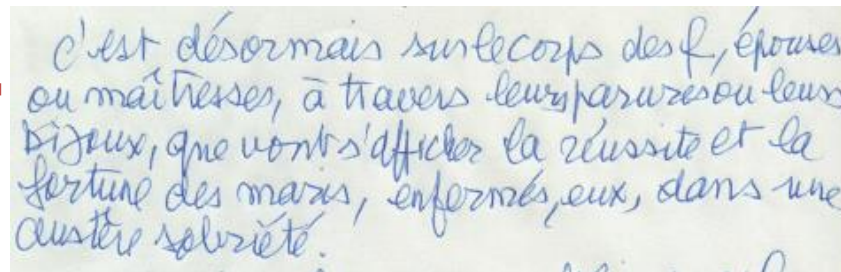 c'est désormais sur le corps des f, épouses
ou maîtresses, à travers leurs parures ou leurs
bijoux, que vont s'afficher la réussite et la
fortune des maris, enfermés, eux, dans une
austère sobriété.